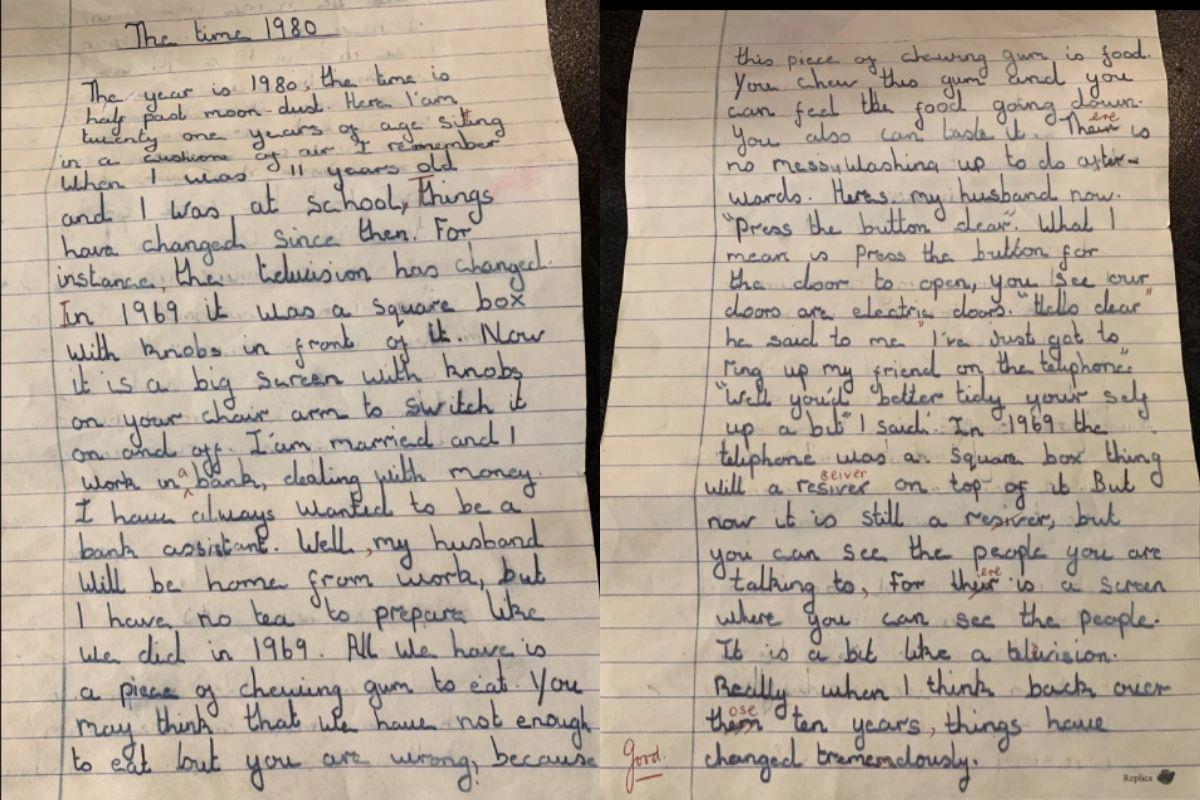 The time 1980
The year is 1980, the time is
half past moon-dust. Here I'am
twenty one years of age sitting
in a cushione of air I remember
When I was 11 years old
and I was at school, Things
have changed since then. For
instance, the television has changed.
In 1969 it was a square box
with knobs in front of it. Now
it is a big screen with knobs
on your chair arm to switch it
on and off. I'am married and I
a
work in bank, dealing with money.
I have always wanted to be a
bank assistant. Well, my husband
will be home from work, but
I have no tea to prepare like
we did in 1969. All we have is
a piece of chewing gum to eat. You
may think that we have not enough
to eat but you are wrong, because
this piece of chewing gum is food.
You chew this gum and you
can feel the food going down.
ere
You also can taste it. Their is
no messy washing up to do after-
wards. Heres my husband now.
"Press the button dear". What I
mean is press the button for
the door to open, you see our
doors are electric doors. "Hello dear"
he said to me "I've just got to
ring up my friend on the telephone."
"Well you'd better tidy your self
up a bit" I said. In 1969 the
telephone was a square box thing
ceiver
will a resiver on top of it But
now it is still a resiver, but
you can see the people you are
ere
talking to, for their is a screen
where you can see the people.
It is a bit like a television.
Really when I think back over
ose
them ten years, things have
changed trememdously.
Good.
Replica